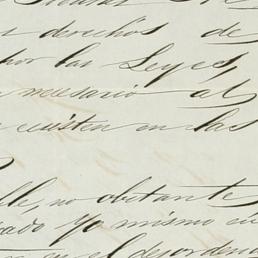 derechos de
por las Leyes,
necesario al
existen en las
lle, no obstante
rado yo mismo en
en el desorden